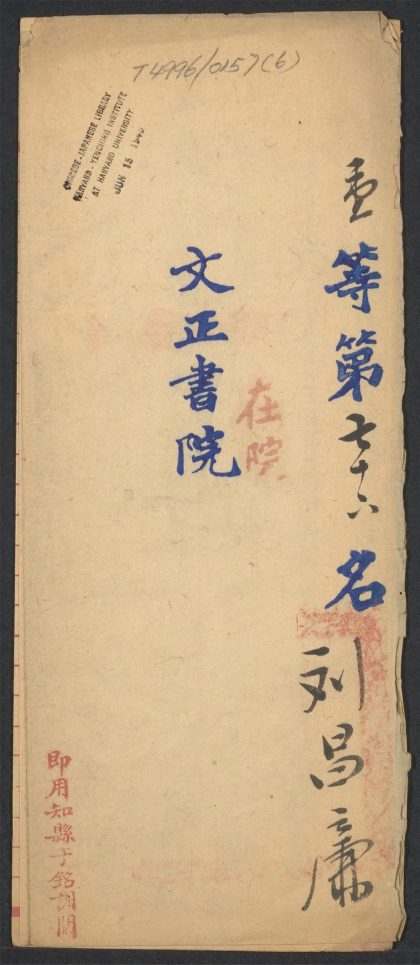 T4996/0157(6)
CHINESE-JAPANESE LIBRARY
HARVARD-YENCHING INSTITUTE
AT HARVARD UNIVERSITY
JUN 15
壹等第七十六名刘昌
在院
文正書院
即用知縣于銘訓閱